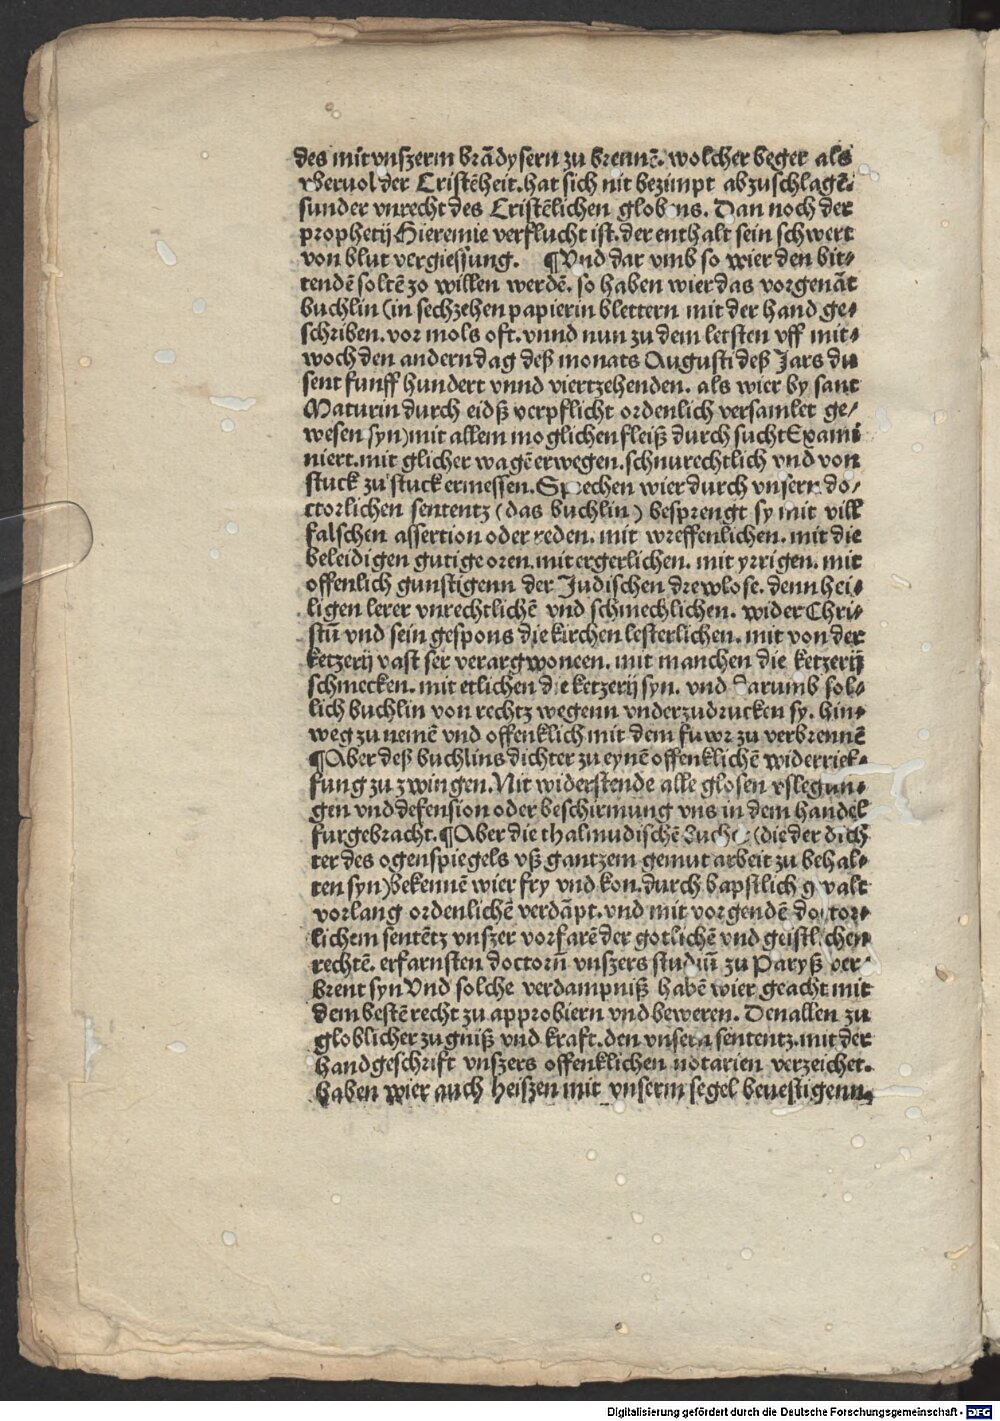 des mit vnszerm brãdysern zu brennẽ. wolcher beger als
vberuol der Cristẽheit. hat sich nit bezimpt abzuschlagẽ.
sunder vnrecht des Cristẽlichen globens. Dan noch der
prophetij Hieremie verflucht ist. der enthalt sein schwert
von blut vergiessung. ¶Vnd dar vmb so wier den bit⸗
tendẽ soltẽ zo willen werdẽ. so haben wier das vorgenãt
buchlin (in sechzehen papierin blettern mit der hand ge⸗
schriben. vor mols oft. vnnd nun zu dem letsten vff mit⸗
woch den andern dag deß monats Augusti deß Jars du
sent funff hundert vnnd viertzehenden. als wier by sant
Maturin durch eidß verpflicht ordenlich versamlet ge⸗
wesen syn) mit allem moglichen fleiß durch sucht Exami
niert. mit glicher wagẽ erwegen. schnurechtlich vnd von
stuck zu stuck ermessen. Sprechen wier durch vnsern do⸗
ctorlichen sententz (das buchlin) besprengt sy mit vill
falschen assertion oder reden. mit wreffenlichen. mit die
beleidigen gutige oren. mit ergerlichen. mit yrrigen. mit
offenlich gunstigenn der Judischen drewlose. denn hei⸗
ligen lerer vnrechtlichẽ vnd schmechlichen. wider Chri⸗
stũ vnd sein gespons die kirchen lesterlichen. mit von der
ketzerij vast ser verargwoneen. mit manchen die ketzerij
schmecken. mit etlichen die ketzerij syn. vnd Darumb sol⸗
lich buchlin von rechtz wegenn vnderzudrucken sy. hin⸗
weg zu nemẽ vnd offenklich mit dem fuwr zu verbrennẽ
¶Aber deß buchlins dichter zu eynẽ offenklichẽ widerrief⸗
fung zu zwingen. Nit widerstende alle glosen vslegun⸗
gen vnd defension oder beschirmung vns in dem handel
furgebracht. ¶Aber die thalmudischẽ Bucher (die der dich
ter des ogenspiegels vß gantzem gemut arbeit zu behal⸗
ten syn) bekennẽ wier fry vnd kon. durch bapstlich gwalt
vorlang ordenlichẽ verdãpt. vnd mit vorgendẽ doctor⸗
lichem sentẽtz vnszer vorfarẽ der gotlichẽ vnd geistlichen
rechtẽ. erfarnsten doctorũ vnszers studiũ zu Paryß ver⸗
brent syn Vnd solche verdampniß habẽ wier geacht mit
dem bestẽ recht zu approbiern vnd beweren. Den allen zu
globlicher zugniß vnd kraft. den vnsern sententz. mit der
handgeschrift vnszers offenklichen notarien verzeichet.
haben wier auch heiszen mit vnserm segel beuestigenn.
Digitalisierung gefördert durch die Deutsche Forschungsgemeinschaft - DFG